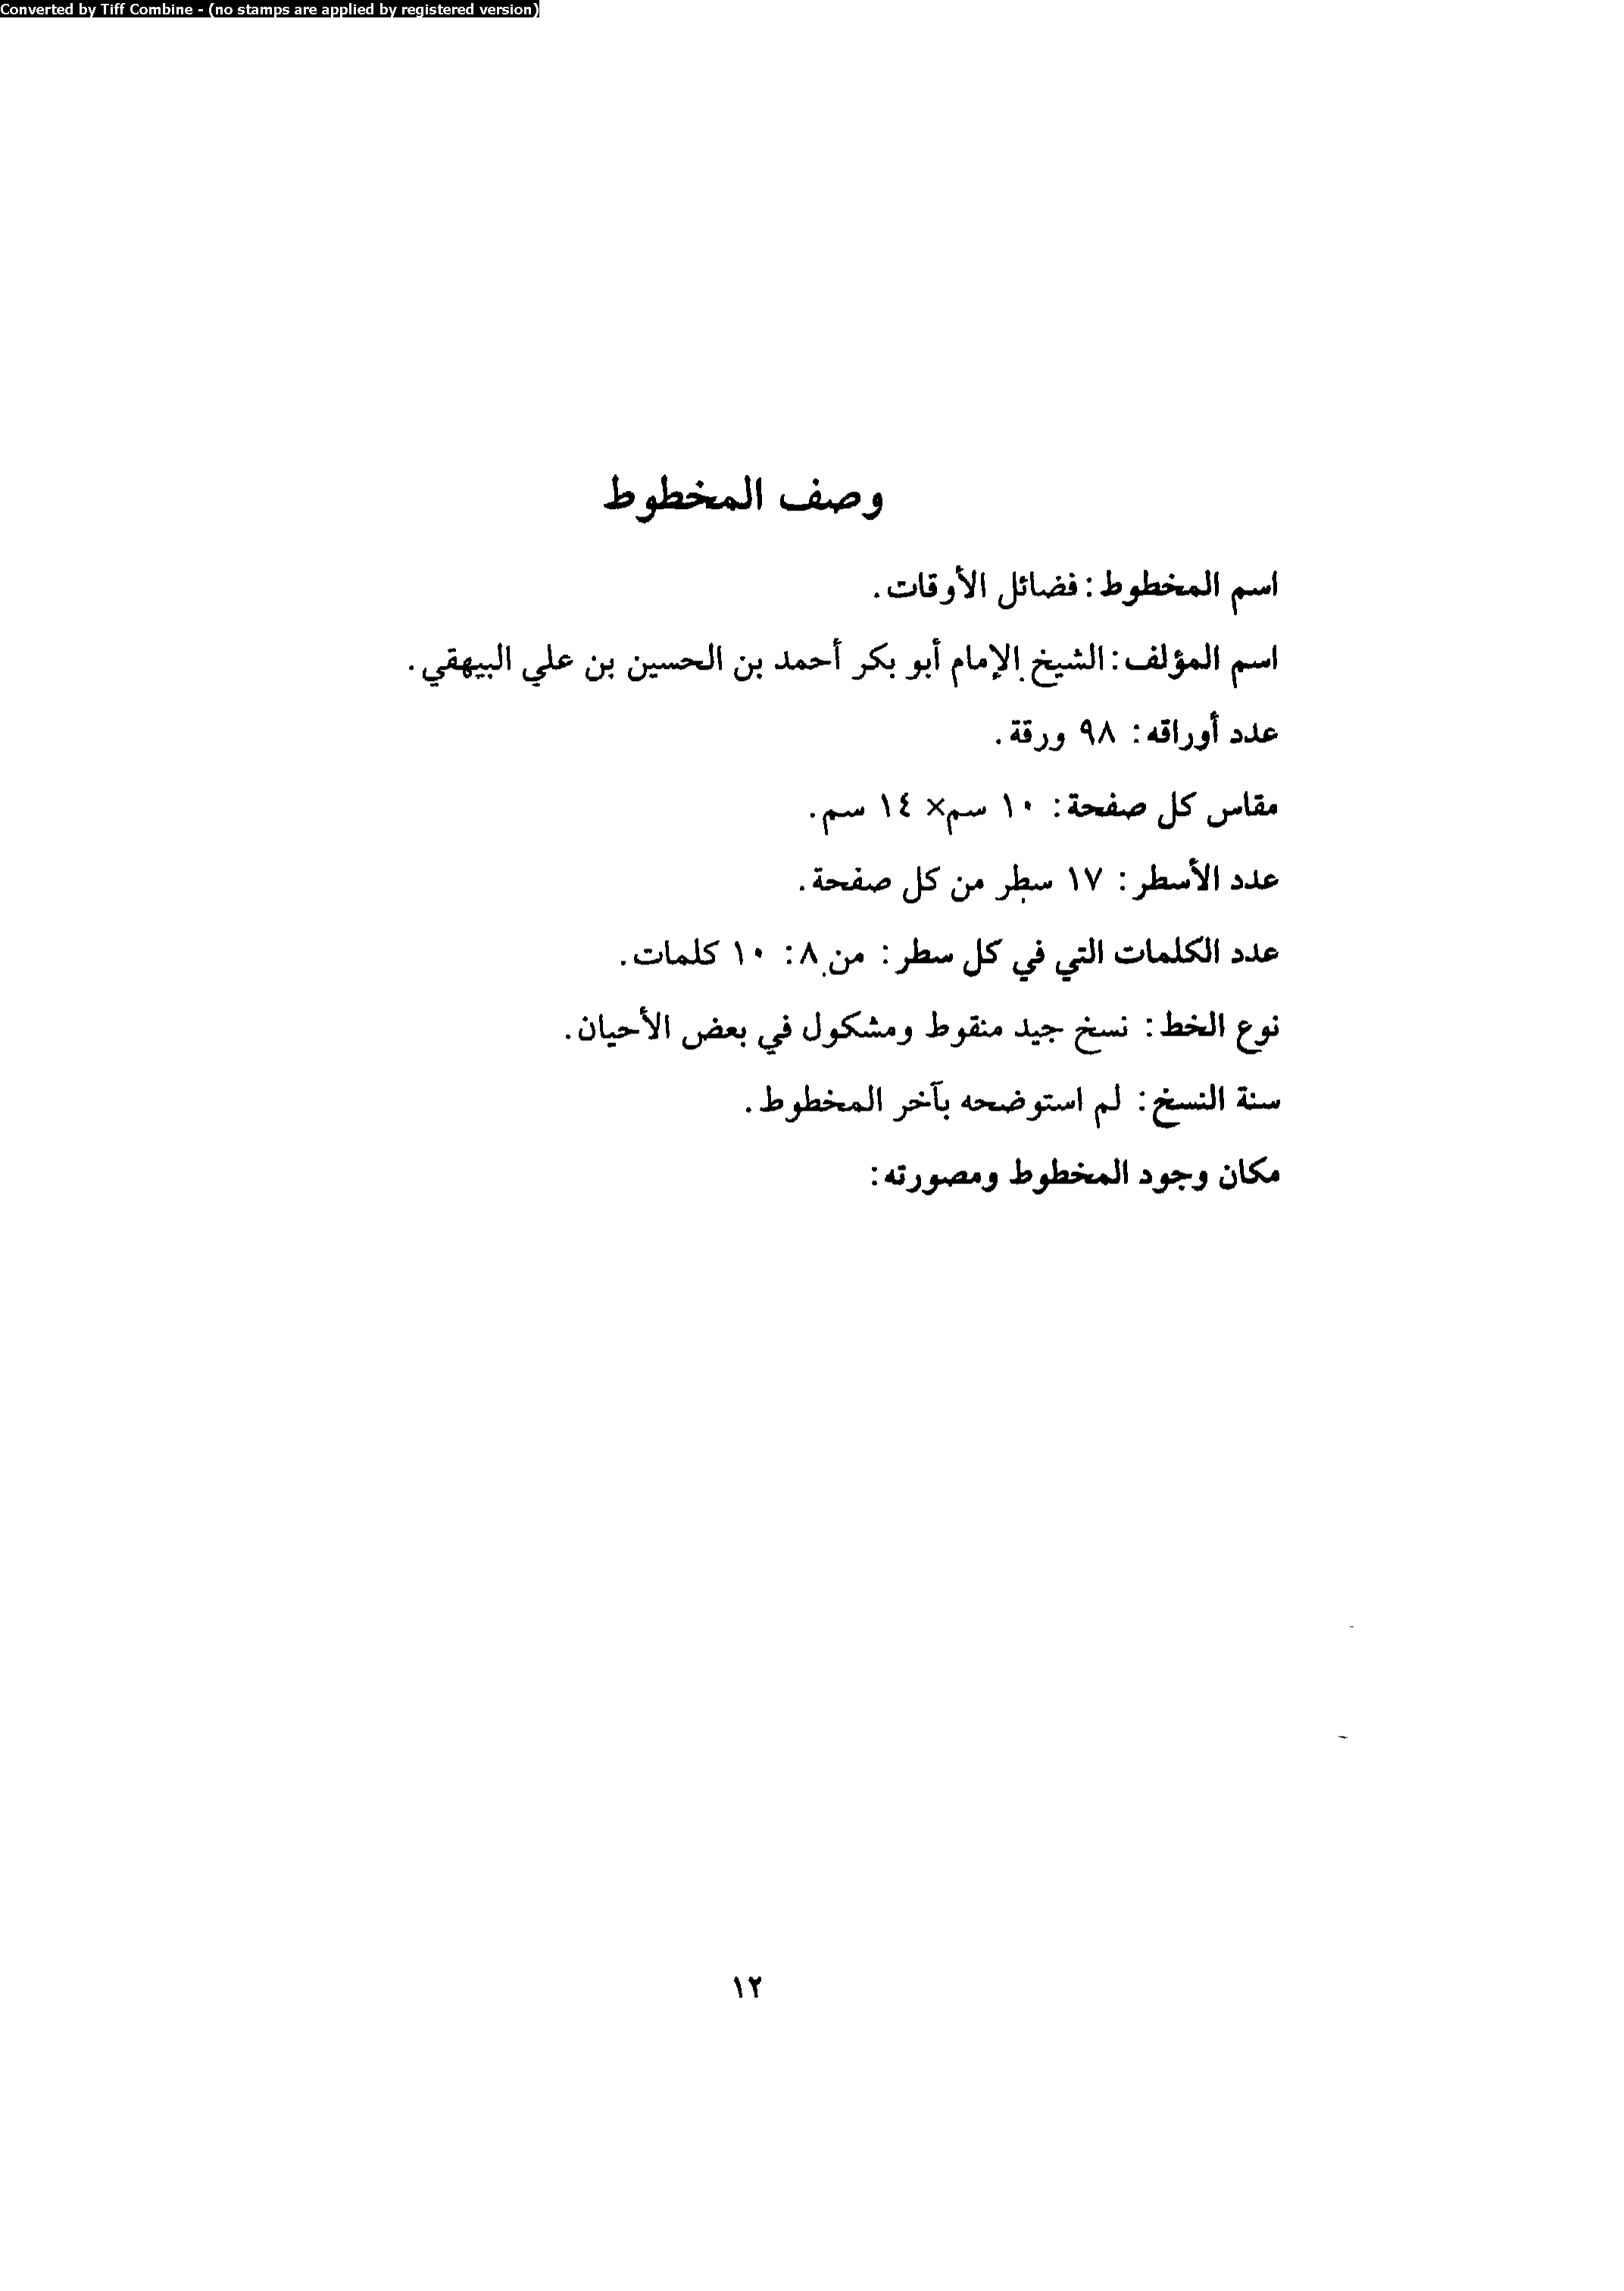 Converted by Tiff Combine - (no stamps are applied by registered version)
وصف المخطوط
اسم المخطوط: فضائل الأوقات.
اسم المؤلف: الشيخ الإمام أبو بكر أحمد بن الحسين بن علي البيهقي.
عدد أوراقه: ٩٨ ورقة.
مقاس كل صفحة: ١٠ سم× ١٤ سم.
عدد الأسطر: ١٧ سطر من كل صفحة.
عدد الكلمات التي في كل سطر: من ٨: ١٠ كلمات.
نوع الخط: نسخ جيد منقوط ومشكول في بعض الأحيان.
سنة النسخ: لم استوضحه بآخر المخطوط.
مكان وجود المخطوط ومصورته:
١٢